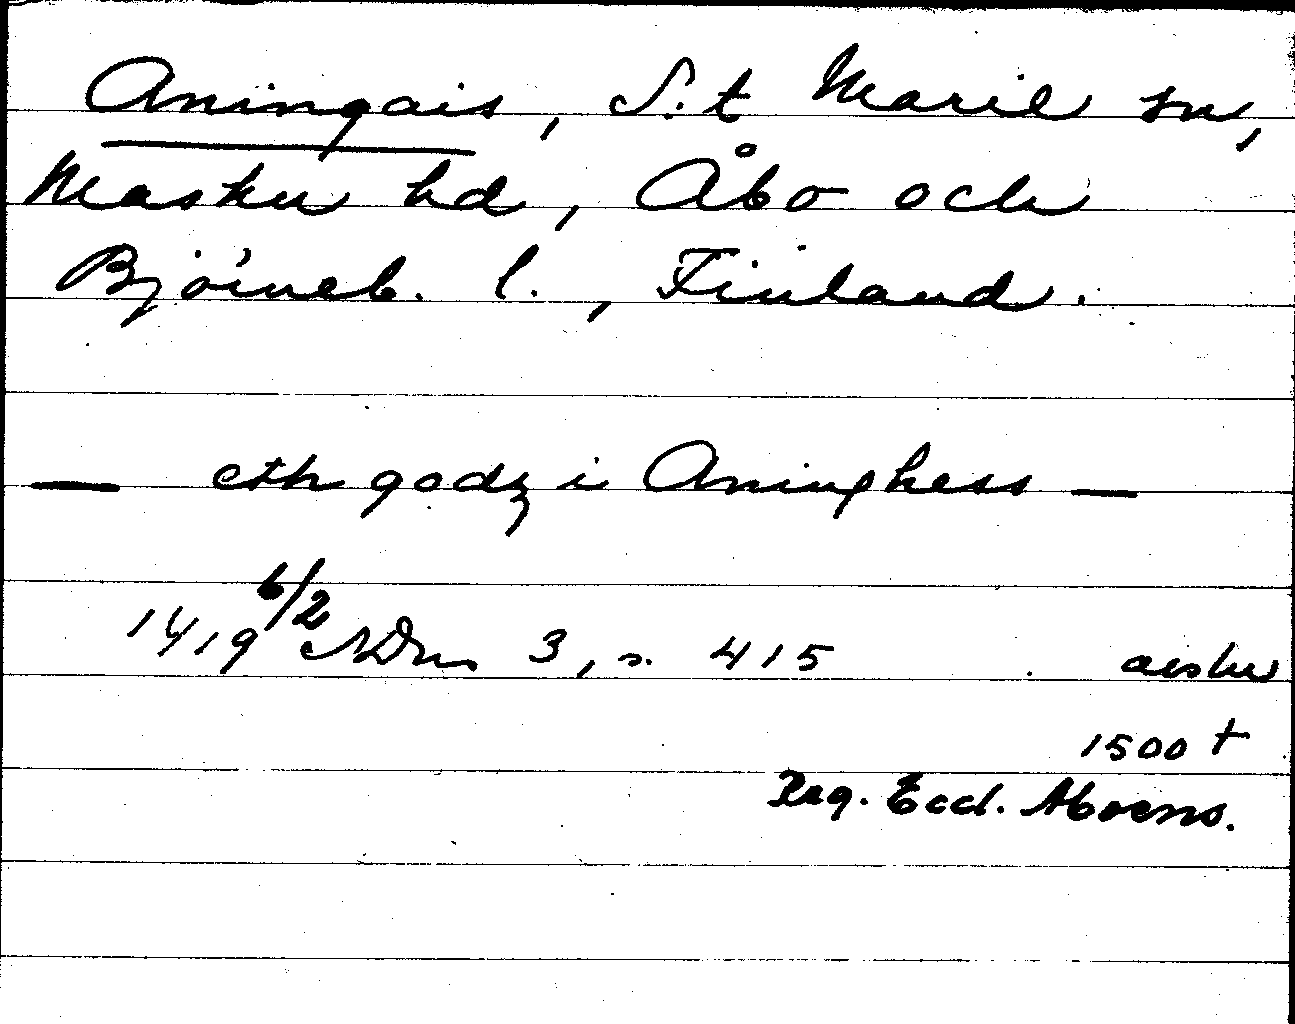 Aningais, S:t Marie sn,
Masku hd, Åbo och
Björneb. l., Finland.
— eth godz i Aninghess —
1419 6/2 NDn 3, s. 415 avskr
1500 t
Reg. Eccl. Aboens.